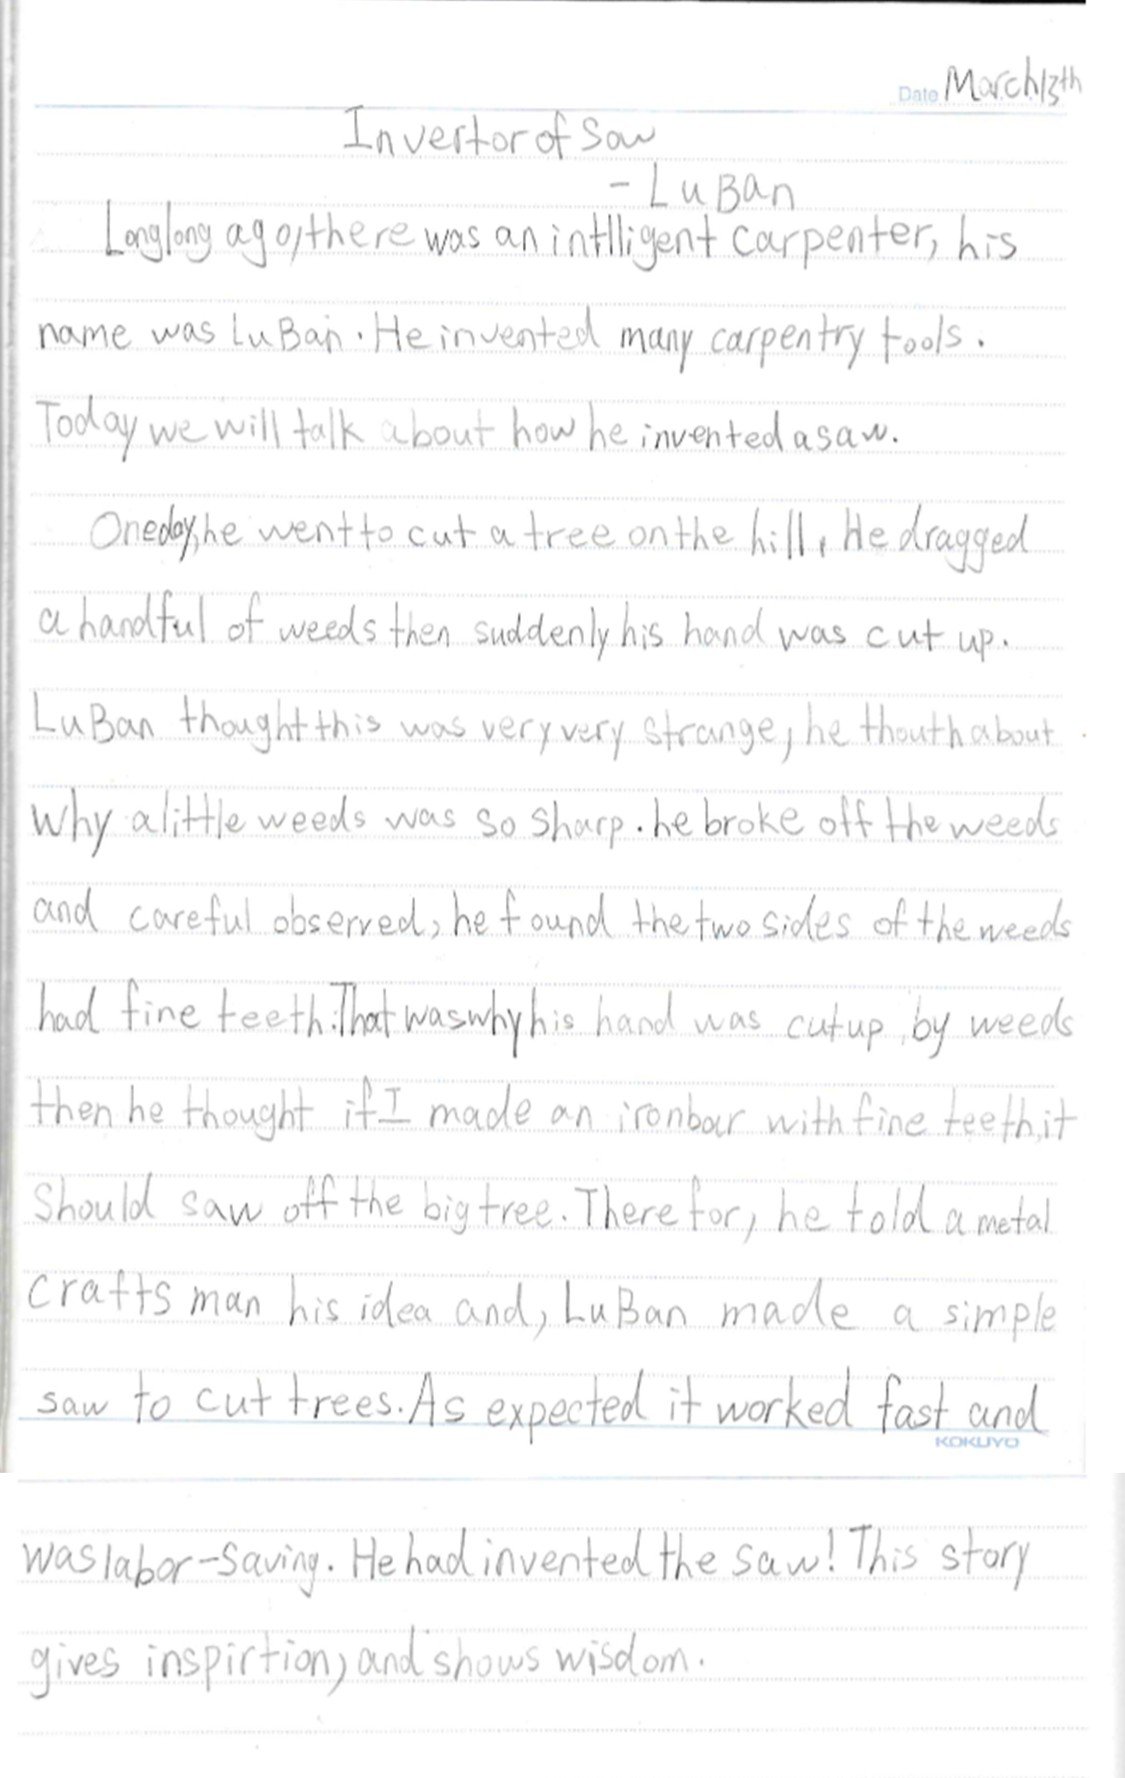 Date March 13th
Invertor of Saw
- Lu Ban
Long long ago, there was an intlligent carpenter, his
name was Lu Ban. He invented many carpentry tools.
Today we will talk about how he invented a saw.
One day, he went to cut a tree on the hill, He dragged
a handful of weeds then suddenly his hand was cut up.
Lu Ban thought this was very very strange, he thouth about
why a little weeds was so sharp. he broke off the weeds
and careful observed, he found the two sides of the weeds
had fine teeth. That was why his hand was cut up by weeds
then he thought if I made an iron bar with fine teeth, it
should saw off the big tree. There for, he told a metal
crafts man his idea and, Lu Ban made a simple
saw to cut trees. As expected it worked fast and
KOKUYO
was labor-saving. He had invented the saw! This story
gives inspirtion, and shows wisdom.